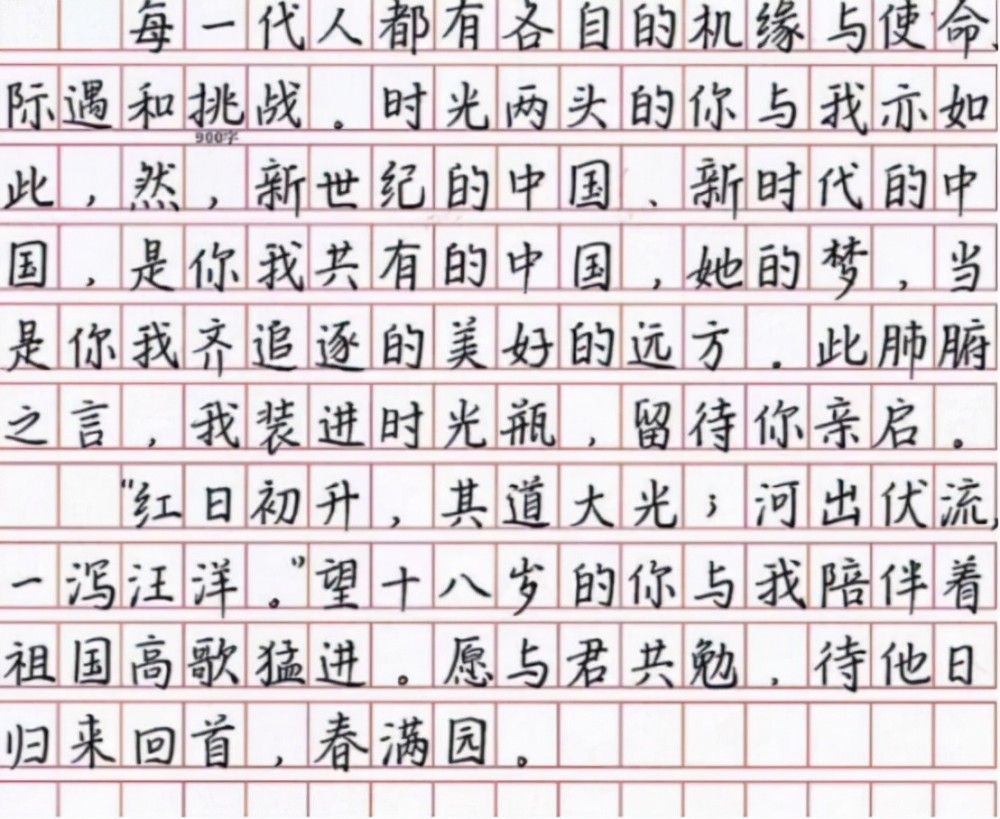 每一代人都有各自的机缘与使命、
际遇和挑战。时光两头的你与我亦如
900字
此，然，新世纪的中国、新时代的中
国，是你我共有的中国，她的梦，当
是你我齐追逐的美好的远方。此肺腑
之言，我装进时光瓶，留待你亲启。
“红日初升，其道大光；河出伏流，
一泻汪洋。”望十八岁的你与我陪伴着
祖国高歌猛进。愿与君共勉，待他日
归来回首，春满园。